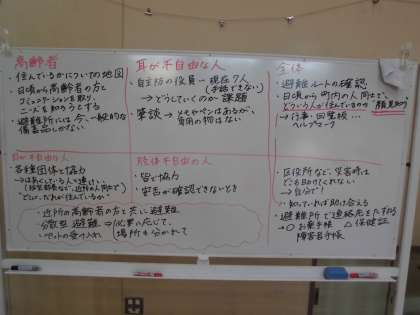 高齢者
・住んでいるかについての地図
・日頃から高齢者の方と
コミュニケーションを取り、
ニーズを知ろうとする
・避難所には今、一般的な
備蓄品しかない
耳が不自由な人
・自主防の役員 → 現在7人
(手話できない)
→どうしていくのか 課題
・筆談 → メモやペンはあるが、
専用の物はない
全体
・避難ルートの確認
・日頃から町内の人同士で、
どういう人が住んでいるのか "顔見知り"
→行事・回覧板…
ヘルプマーク
目が不自由な人
・各種団体と協力
どこにだれが住んでいるか
肢体不自由の人
・皆で協力
・安否が確認できないとき
・近所の高齢者の方と共に避難
・分散型避難 → 必要に応じて、
場所も分かれて
・ペットの受け入れ
・区役所など、災害時は
とても助けてくれない
→自分で!
・知っていれば助け合える
・避難所で連絡先をたずねる
→○お薬手帳 △保険証
障害者手帳